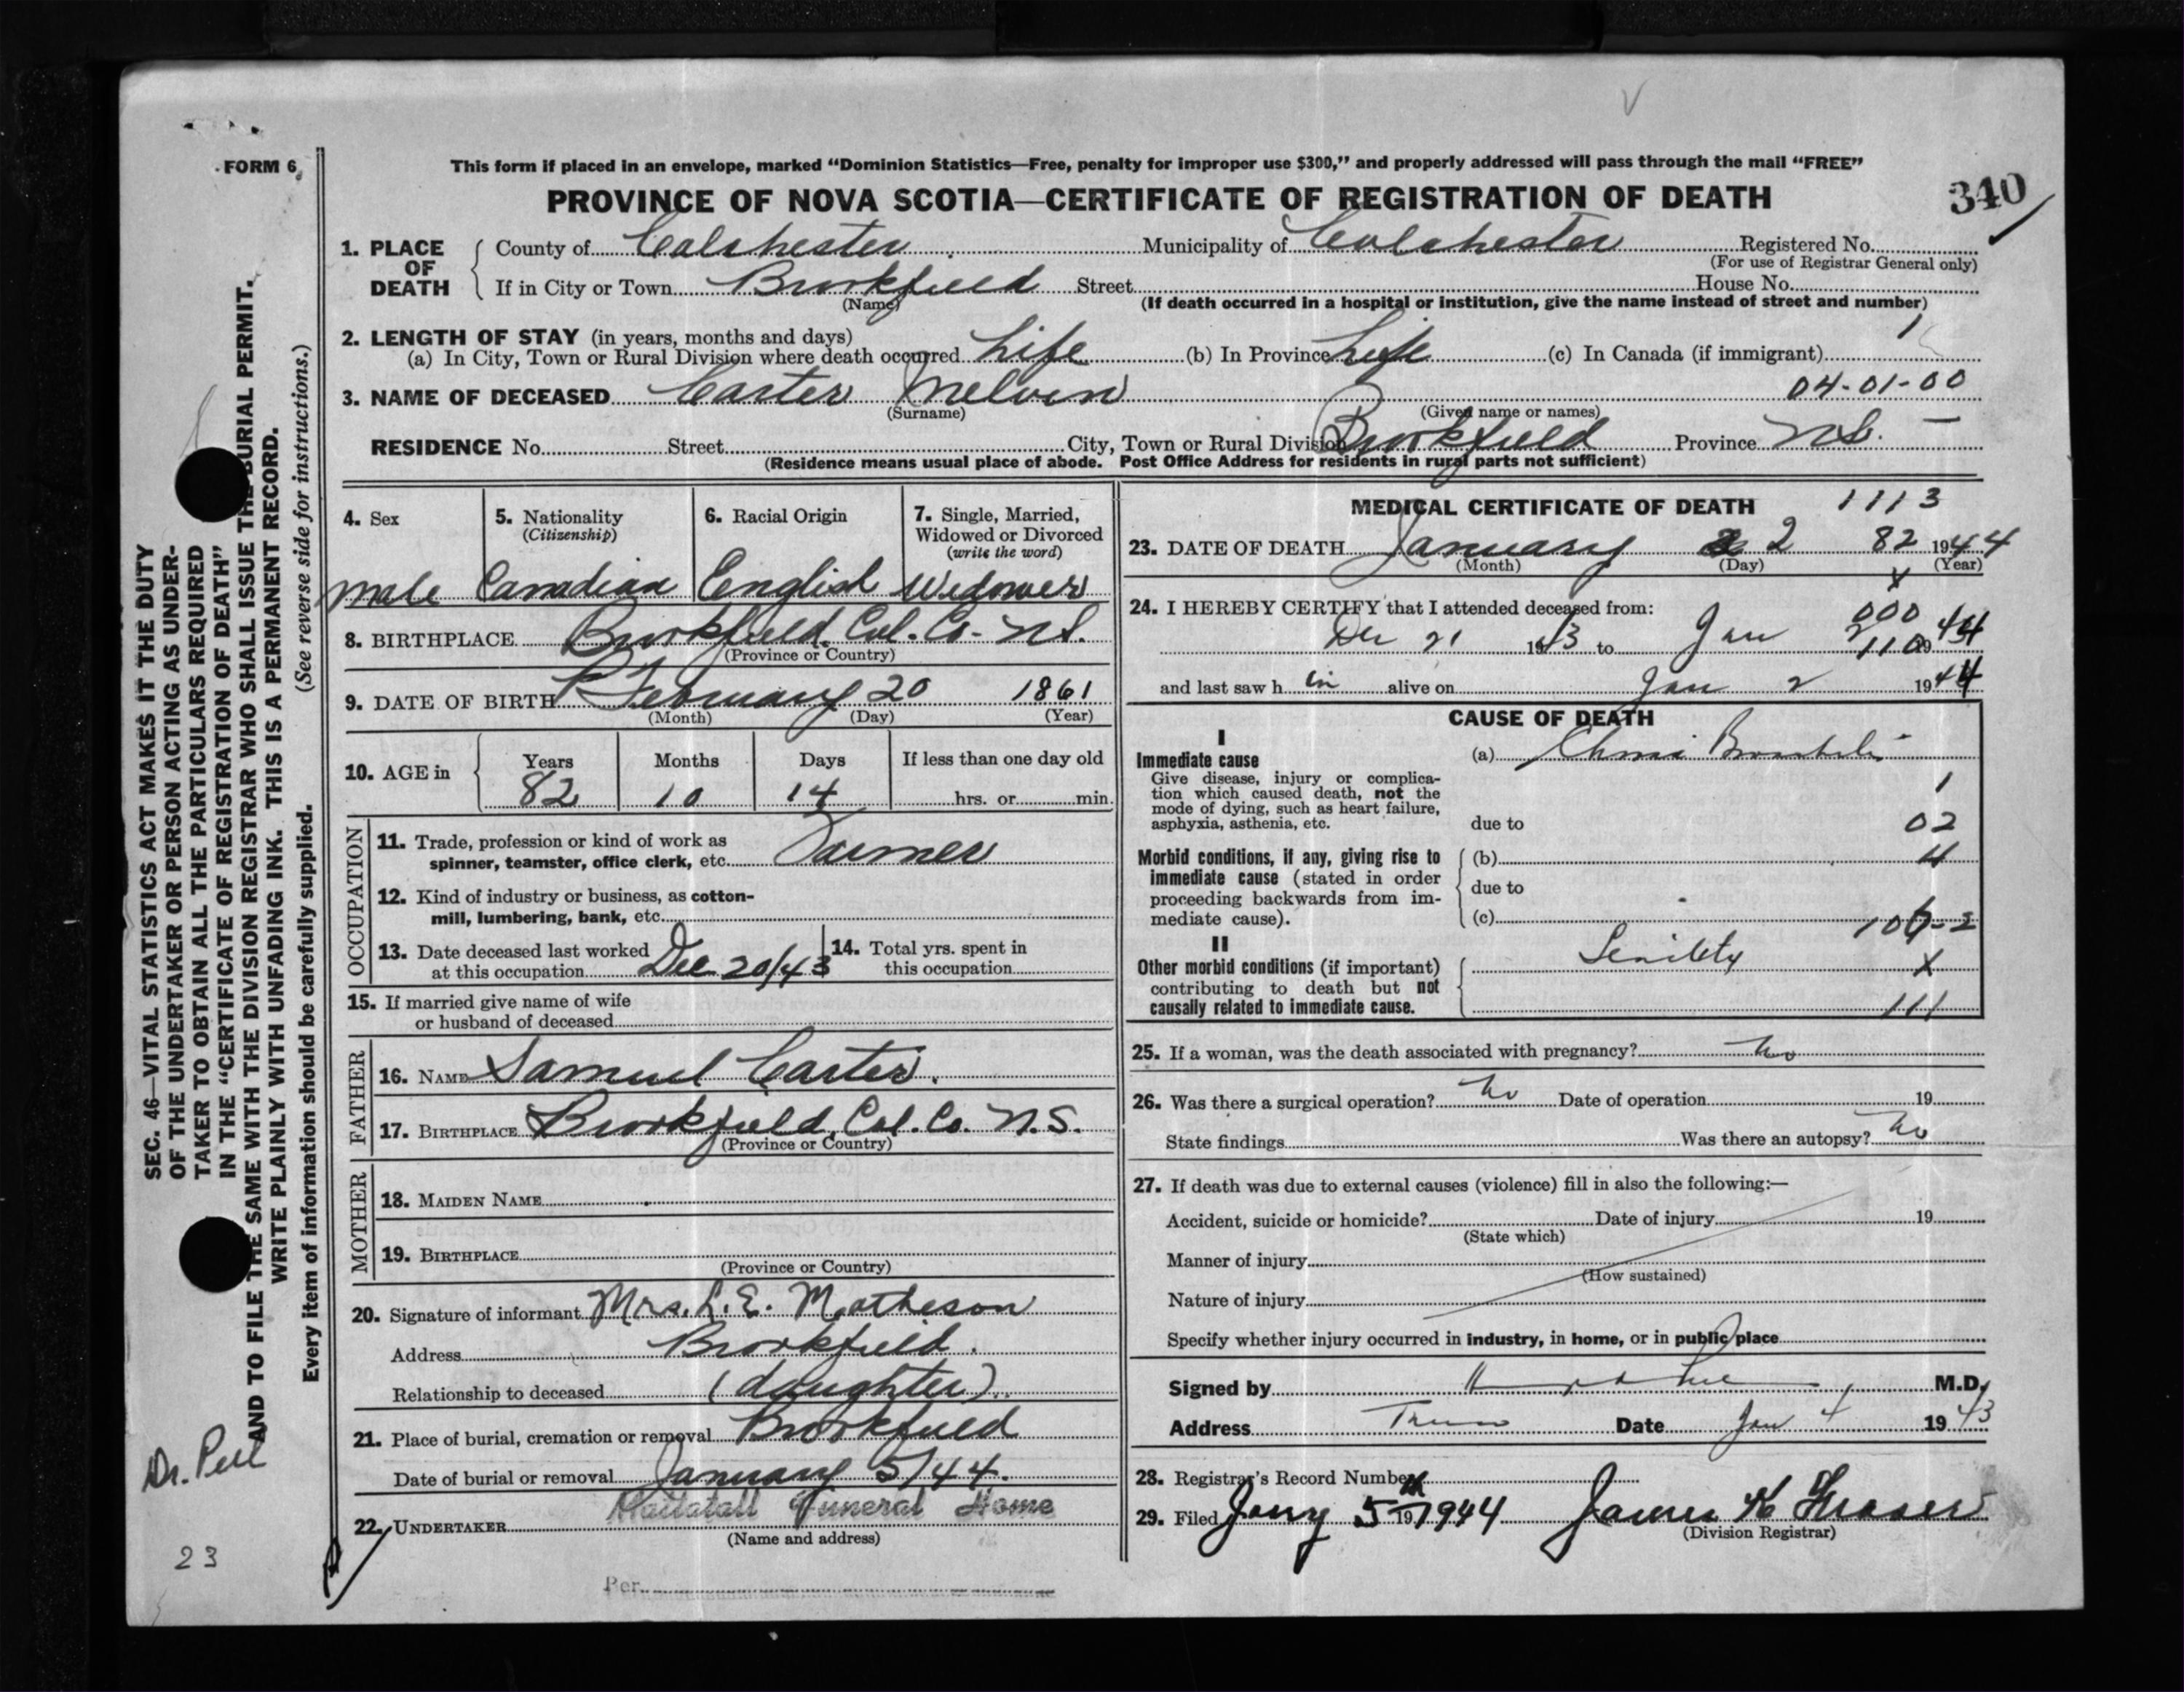 FORM 6
This form if placed in an envelope, marked “Dominion Statistics—Free, penalty for improper use $300,” and properly addressed will pass through the mail “FREE”
PROVINCE OF NOVA SCOTIA—CERTIFICATE OF REGISTRATION OF DEATH
340
1. PLACE OF DEATH
County of Colchester Municipality of Colchester Registered No.
(For use of Registrar General only)
If in City or Town Brookfield Street House No.
(Name) (If death occurred in a hospital or institution, give the name instead of street and number)
2. LENGTH OF STAY (in years, months and days) 1
(a) In City, Town or Rural Division where death occurred Life (b) In Province Life (c) In Canada (if immigrant)
04-01-00
3. NAME OF DECEASED Carter Melvin
(Surname) (Given name or names)
RESIDENCE No. Street City, Town or Rural Division Brookfield Province N.S. —
(Residence means usual place of abode. Post Office Address for residents in rural parts not sufficient)
4. Sex
male
5. Nationality
(Citizenship)
Canadian
6. Racial Origin
English
7. Single, Married,
Widowed or Divorced
(write the word)
Widower
8. BIRTHPLACE Brookfield, Col. Co. N.S.
(Province or Country)
9. DATE OF BIRTH February 20 1861
(Month) (Day) (Year)
10. AGE in
Years Months Days If less than one day old
82 10 14 hrs. or min.
OCCUPATION
11. Trade, profession or kind of work as
spinner, teamster, office clerk, etc. Farmer
12. Kind of industry or business, as cotton-
mill, lumbering, bank, etc.
13. Date deceased last worked
at this occupation Dec 20/43
14. Total yrs. spent in
this occupation
15. If married give name of wife
or husband of deceased
FATHER
16. NAME Samuel Carter.
17. BIRTHPLACE Brookfield, Col. Co. N.S.
(Province or Country)
MOTHER
18. MAIDEN NAME
19. BIRTHPLACE
(Province or Country)
20. Signature of informant Mrs. L. E. Matheson
Address Brookfield.
Relationship to deceased (daughter).
21. Place of burial, cremation or removal Brookfield
Date of burial or removal January 5/44.
22. UNDERTAKER Mattatall Funeral Home
(Name and address)
Per
MEDICAL CERTIFICATE OF DEATH 1113
23. DATE OF DEATH January 2 82 1944
(Month) (Day) (Year)
24. I HEREBY CERTIFY that I attended deceased from: 000
Dec 21 1943 to Jan 2 110 1944
and last saw h im alive on Jan 2 1944
CAUSE OF DEATH
I
Immediate cause
Give disease, injury or complica-
tion which caused death, not the
mode of dying, such as heart failure,
asphyxia, asthenia, etc.
(a) Bronchitis
1
due to 02
Morbid conditions, if any, giving rise to
immediate cause (stated in order
proceeding backwards from im-
mediate cause).
(b)
due to
(c)
II
Other morbid conditions (if important)
contributing to death but not
causally related to immediate cause.
Senility
X
111
25. If a woman, was the death associated with pregnancy? no
26. Was there a surgical operation? no Date of operation 19
State findings Was there an autopsy? no
27. If death was due to external causes (violence) fill in also the following:—
Accident, suicide or homicide? Date of injury 19
(State which)
Manner of injury
(How sustained)
Nature of injury
Specify whether injury occurred in industry, in home, or in public place
Signed by M.D.
Address Truro Date Jan 4 1943
28. Registrar's Record Number
29. Filed Jany 5th 19 1944 James K Fraser
(Division Registrar)
SEC. 46—VITAL STATISTICS ACT MAKES IT THE DUTY
OF THE UNDERTAKER OR PERSON ACTING AS UNDER-
TAKER TO OBTAIN ALL THE PARTICULARS REQUIRED
IN THE “CERTIFICATE OF REGISTRATION OF DEATH”
AND TO FILE THE SAME WITH THE DIVISION REGISTRAR WHO SHALL ISSUE THE BURIAL PERMIT.
WRITE PLAINLY WITH UNFADING INK. THIS IS A PERMANENT RECORD.
Every item of information should be carefully supplied. (See reverse side for instructions.)
Dr. Peel
23